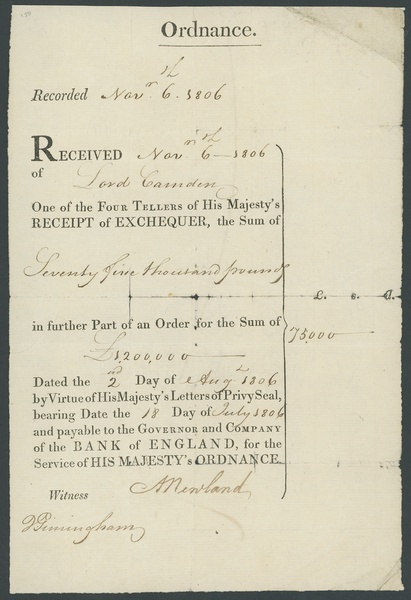 Ordnance.
Recorded Novr. 6th. 1806
RECEIVED Novr. 6th — 1806
of Lord Camden
One of the FOUR TELLERS of His Majesty's
RECEIPT of EXCHEQUER, the Sum of
Seventy five thousand pounds
£. s. d.
in further Part of an Order for the Sum of
75,000
£1,200,000
Dated the 2nd Day of Augt 1806
by Virtue of His Majesty's Letters of Privy Seal,
bearing Date the 18 Day of July 1806
and payable to the GOVERNOR and COMPANY
of the BANK of ENGLAND, for the
Service of HIS MAJESTY's ORDNANCE.
Witness A Newland